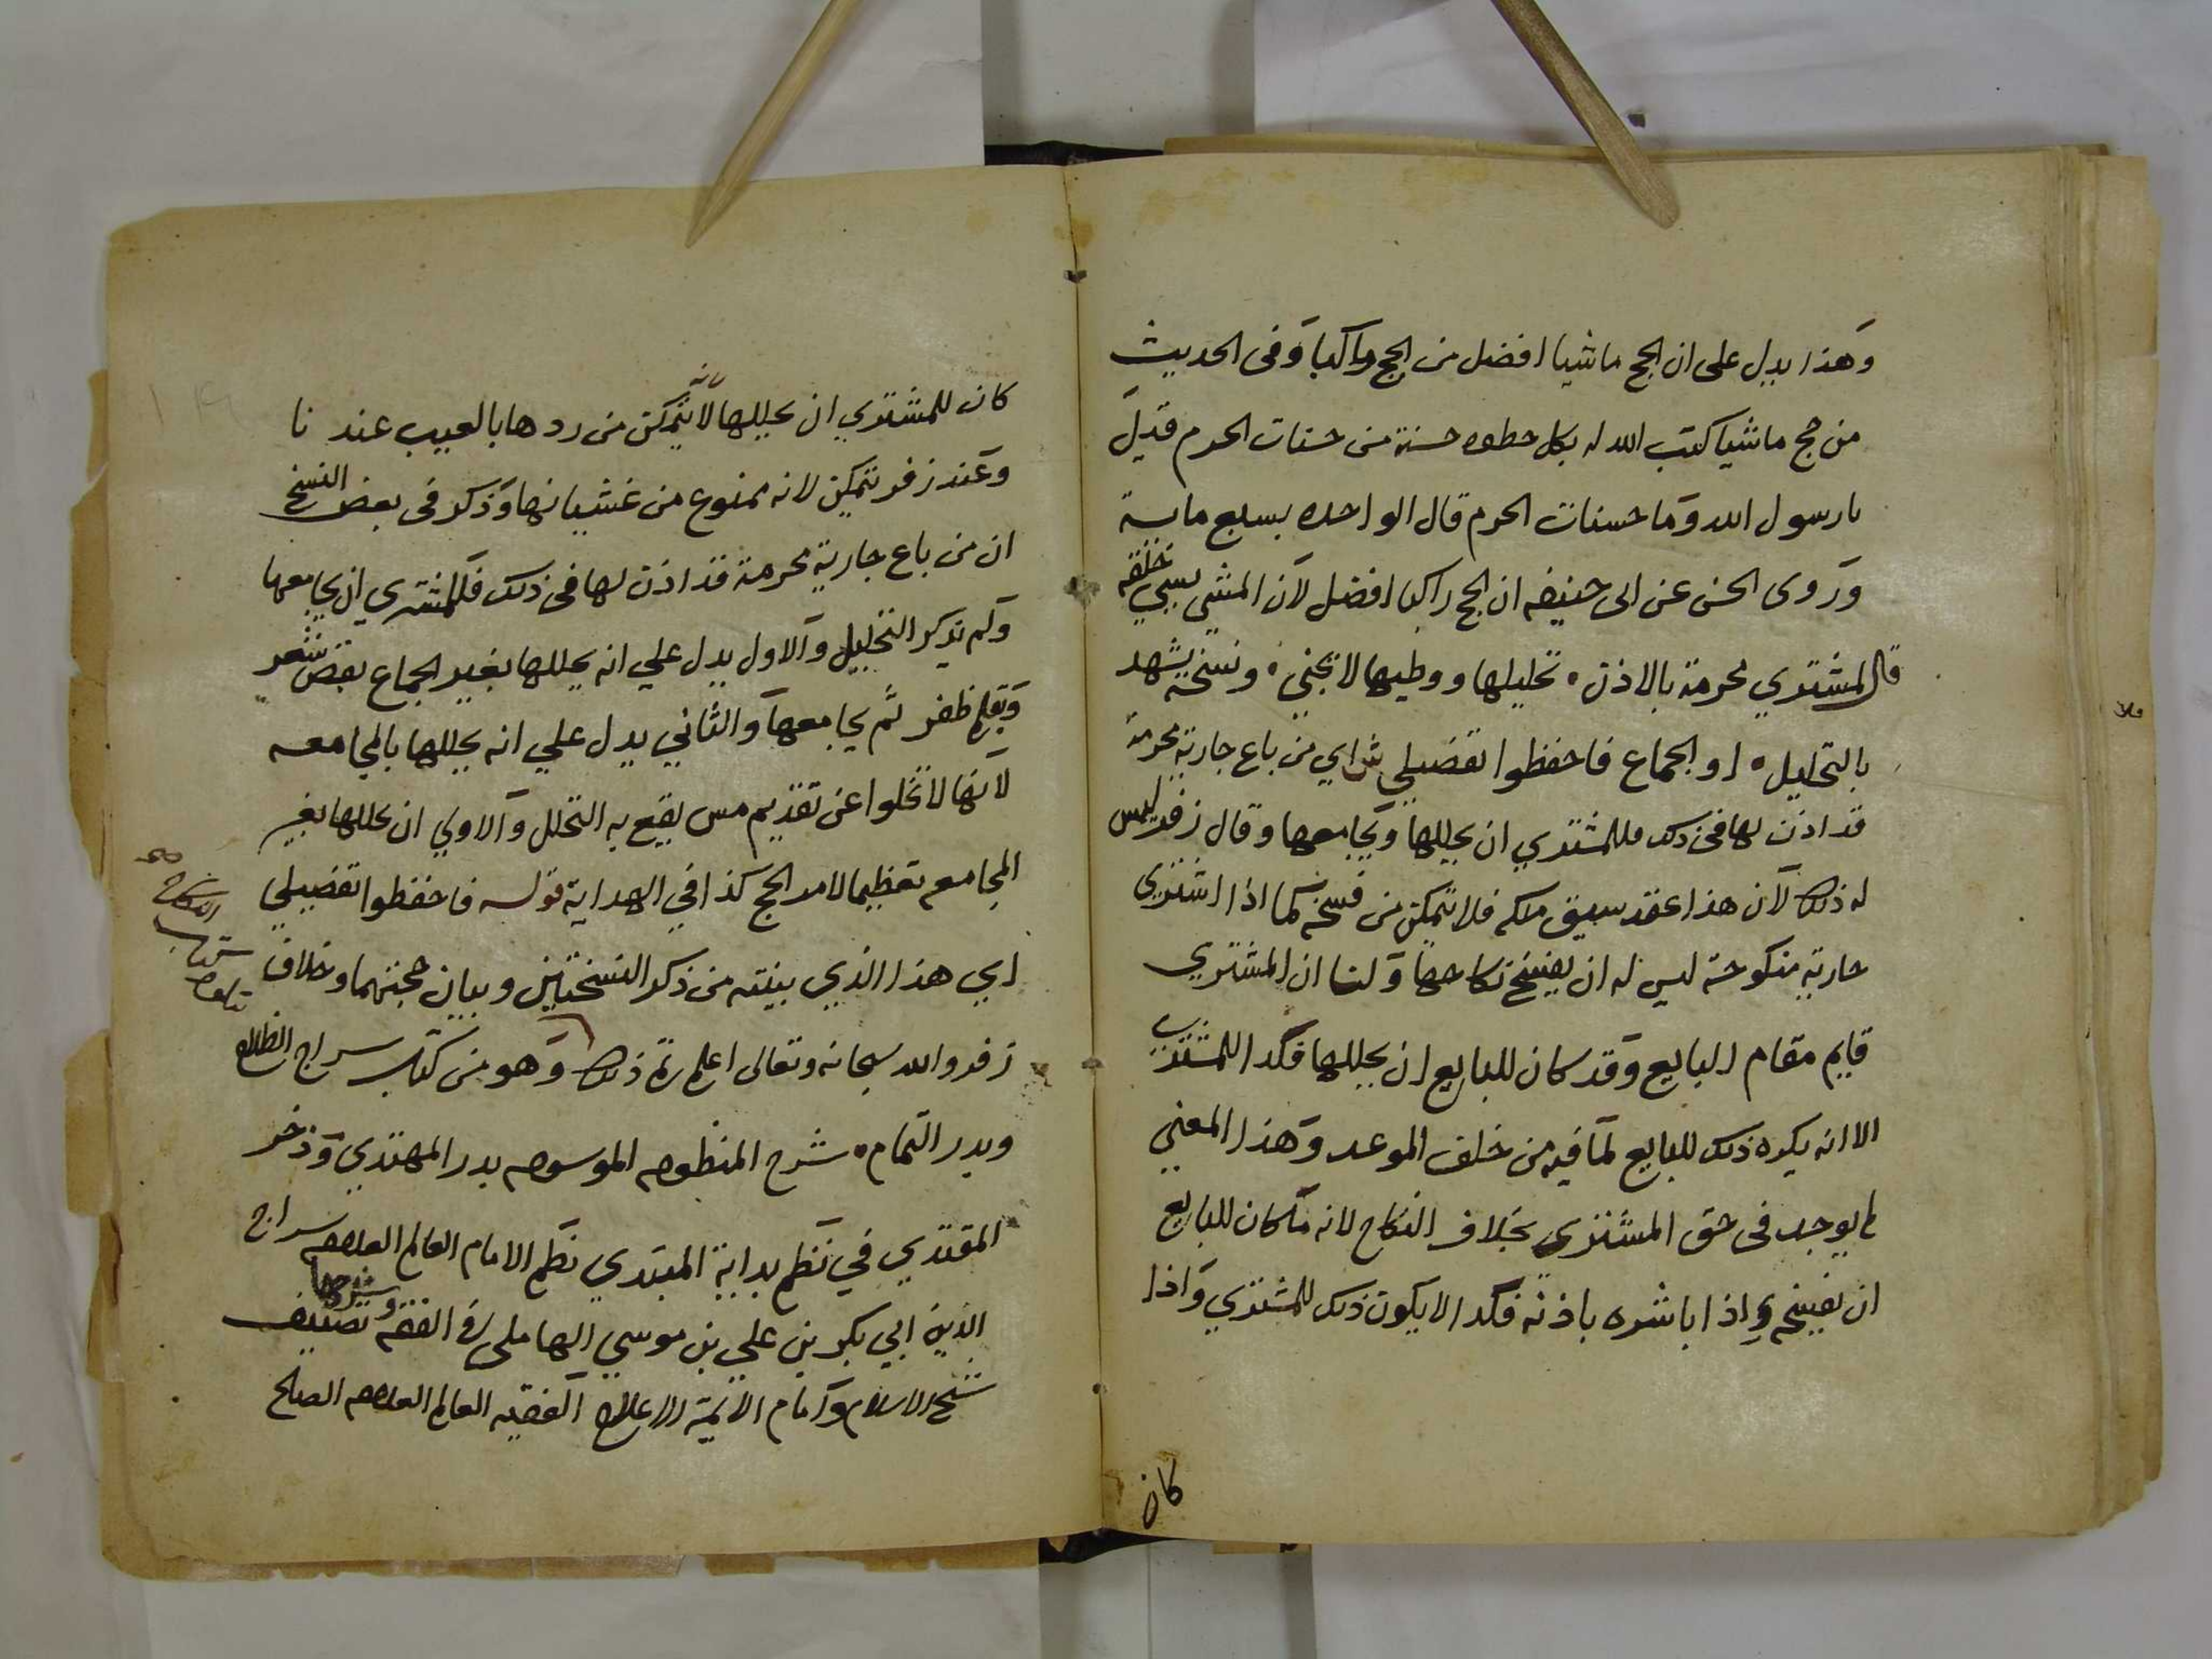 وهذا يدل على ان الحج ماشيا افضل من الحج راكبا وفى الحديث
من حج ماشيا كتب الله له بكل خطوه حسنة من حسنات الحرم قيل
يارسول الله وما حسنات الحرم قال الواحده بسبع مايه
وروى الحسن عن ابى حنيفه ان الحج راكبا افضل لان المشي يسيي خلقه
قال المشتري محرمة بالاذن ه تحليلها ووطيها لا تجني ه ونسخة يشهد
بالتحليل ه او الجماع فاحفظوا تفضيلي ش اي من باع جارية محرمة
قد اذن لها فى ذلك فللمشتري ان يحللها ويجامعها وقال زفر ليس
له ذلك لان هذا عقد سبق ملكه فلا يتمكن من فسخه كما اذا اشترى
جارية منكوحة ليس له ان يفسخ نكاحها ولنا ان المشتري
قايم مقام البايع وقد كان للبايع ان يحللها فكذا المشتري
الا انه يكره ذلك للبايع لما فيه من خلف الموعد وهذا المعني
لم يوجد فى حق المشتري بخلاف النكاح لانه ما كان للبايع
ان يفسخه اذا باشره باذنه فكذا لا يكون ذلك للمشتري واذا
كان
كان للمشتري ان يحللها لا يتمكن من ردها بالعيب عندنا
وعند زفر يتمكن لانه ممنوع من غشيانها وذكر فى بعض النسخ
ان من باع جارية محرمة قد اذن لها فى ذلك فللمشتري ان يجامعها
ولم يذكر التحليل والاول يدل علي انه يحللها بغير الجماع بقص شعر
وبقلم ظفر ثم يجامعها والثاني يدل علي انه يحللها بالمجامعه
لانها لا تخلوا عن تقديم مس يقع به التحلل والاولي ان يحللها بغير
المجامعه تعظيما لامر الحج كذا في الهداية قوله فاحفظوا تفضيلي
اي هذا الذي بينته من ذكر النسختين وبيان حجتهما وخلاف
زفر والله سبحانه وتعالى اعلم تم ذلك وهو من كتاب سراج الظلام
وبدر التمام ه شرح المنظومه الموسومه بدر المهتدي وذخر
المقتدي في نظم بداية المبتدي نظم الامام العالم العلامه سراج
الدين ابي بكر بن علي بن موسي الهاملى فى الفقه وشرحها تصنيف
شيخ الاسلام وامام الايمة الاعلام الفقيه العالم العلامه الصالح
يتلوه كتاب النكاح